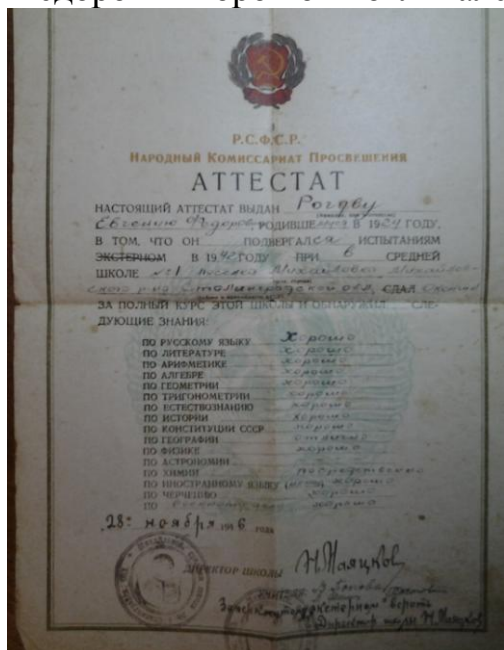 Р.С.Ф.С.Р.
НАРОДНЫЙ КОМИССАРИАТ ПРОСВЕЩЕНИЯ
АТТЕСТАТ
НАСТОЯЩИЙ АТТЕСТАТ ВЫДАН
РОДИВШЕ В 1924 ГОДУ,
В ТОМ, ЧТО ОН ПОДВЕРГАЛСЯ ИСПЫТАНИЯМ
ЭКСТЕРНОМ В 1942 ГОДУ ПРИ В СРЕДНЕЙ
ШКОЛЕ №1 Михайловка
Сталинградской обл. СДАЛ
ЗА ПОЛНЫЙ КУРС ЭТОЙ ШКОЛЫ И ОБНАРУЖИЛ СЛЕ-
ДУЮЩИЕ ЗНАНИЯ:
ПО РУССКОМУ ЯЗЫКУ Хорошо
ПО ЛИТЕРАТУРЕ хорошо
ПО АРИФМЕТИКЕ хорошо
ПО АЛГЕБРЕ хорошо
ПО ГЕОМЕТРИИ хорошо
ПО ТРИГОНОМЕТРИИ хорошо
ПО ЕСТЕСТВОЗНАНИЮ хорошо
ПО ИСТОРИИ хорошо
ПО КОНСТИТУЦИИ СССР хорошо
ПО ГЕОГРАФИИ отлично
ПО ФИЗИКЕ хорошо
ПО АСТРОНОМИИ
ПО ХИМИИ посредственно
ПО ИНОСТРАННОМУ ЯЗЫКУ хорошо
ПО ЧЕРЧЕНИЮ хорошо
ПО хорошо
28 ноября 1946 года
ДИРЕКТОР ШКОЛЫ
"экстерном" верить
Директор школы